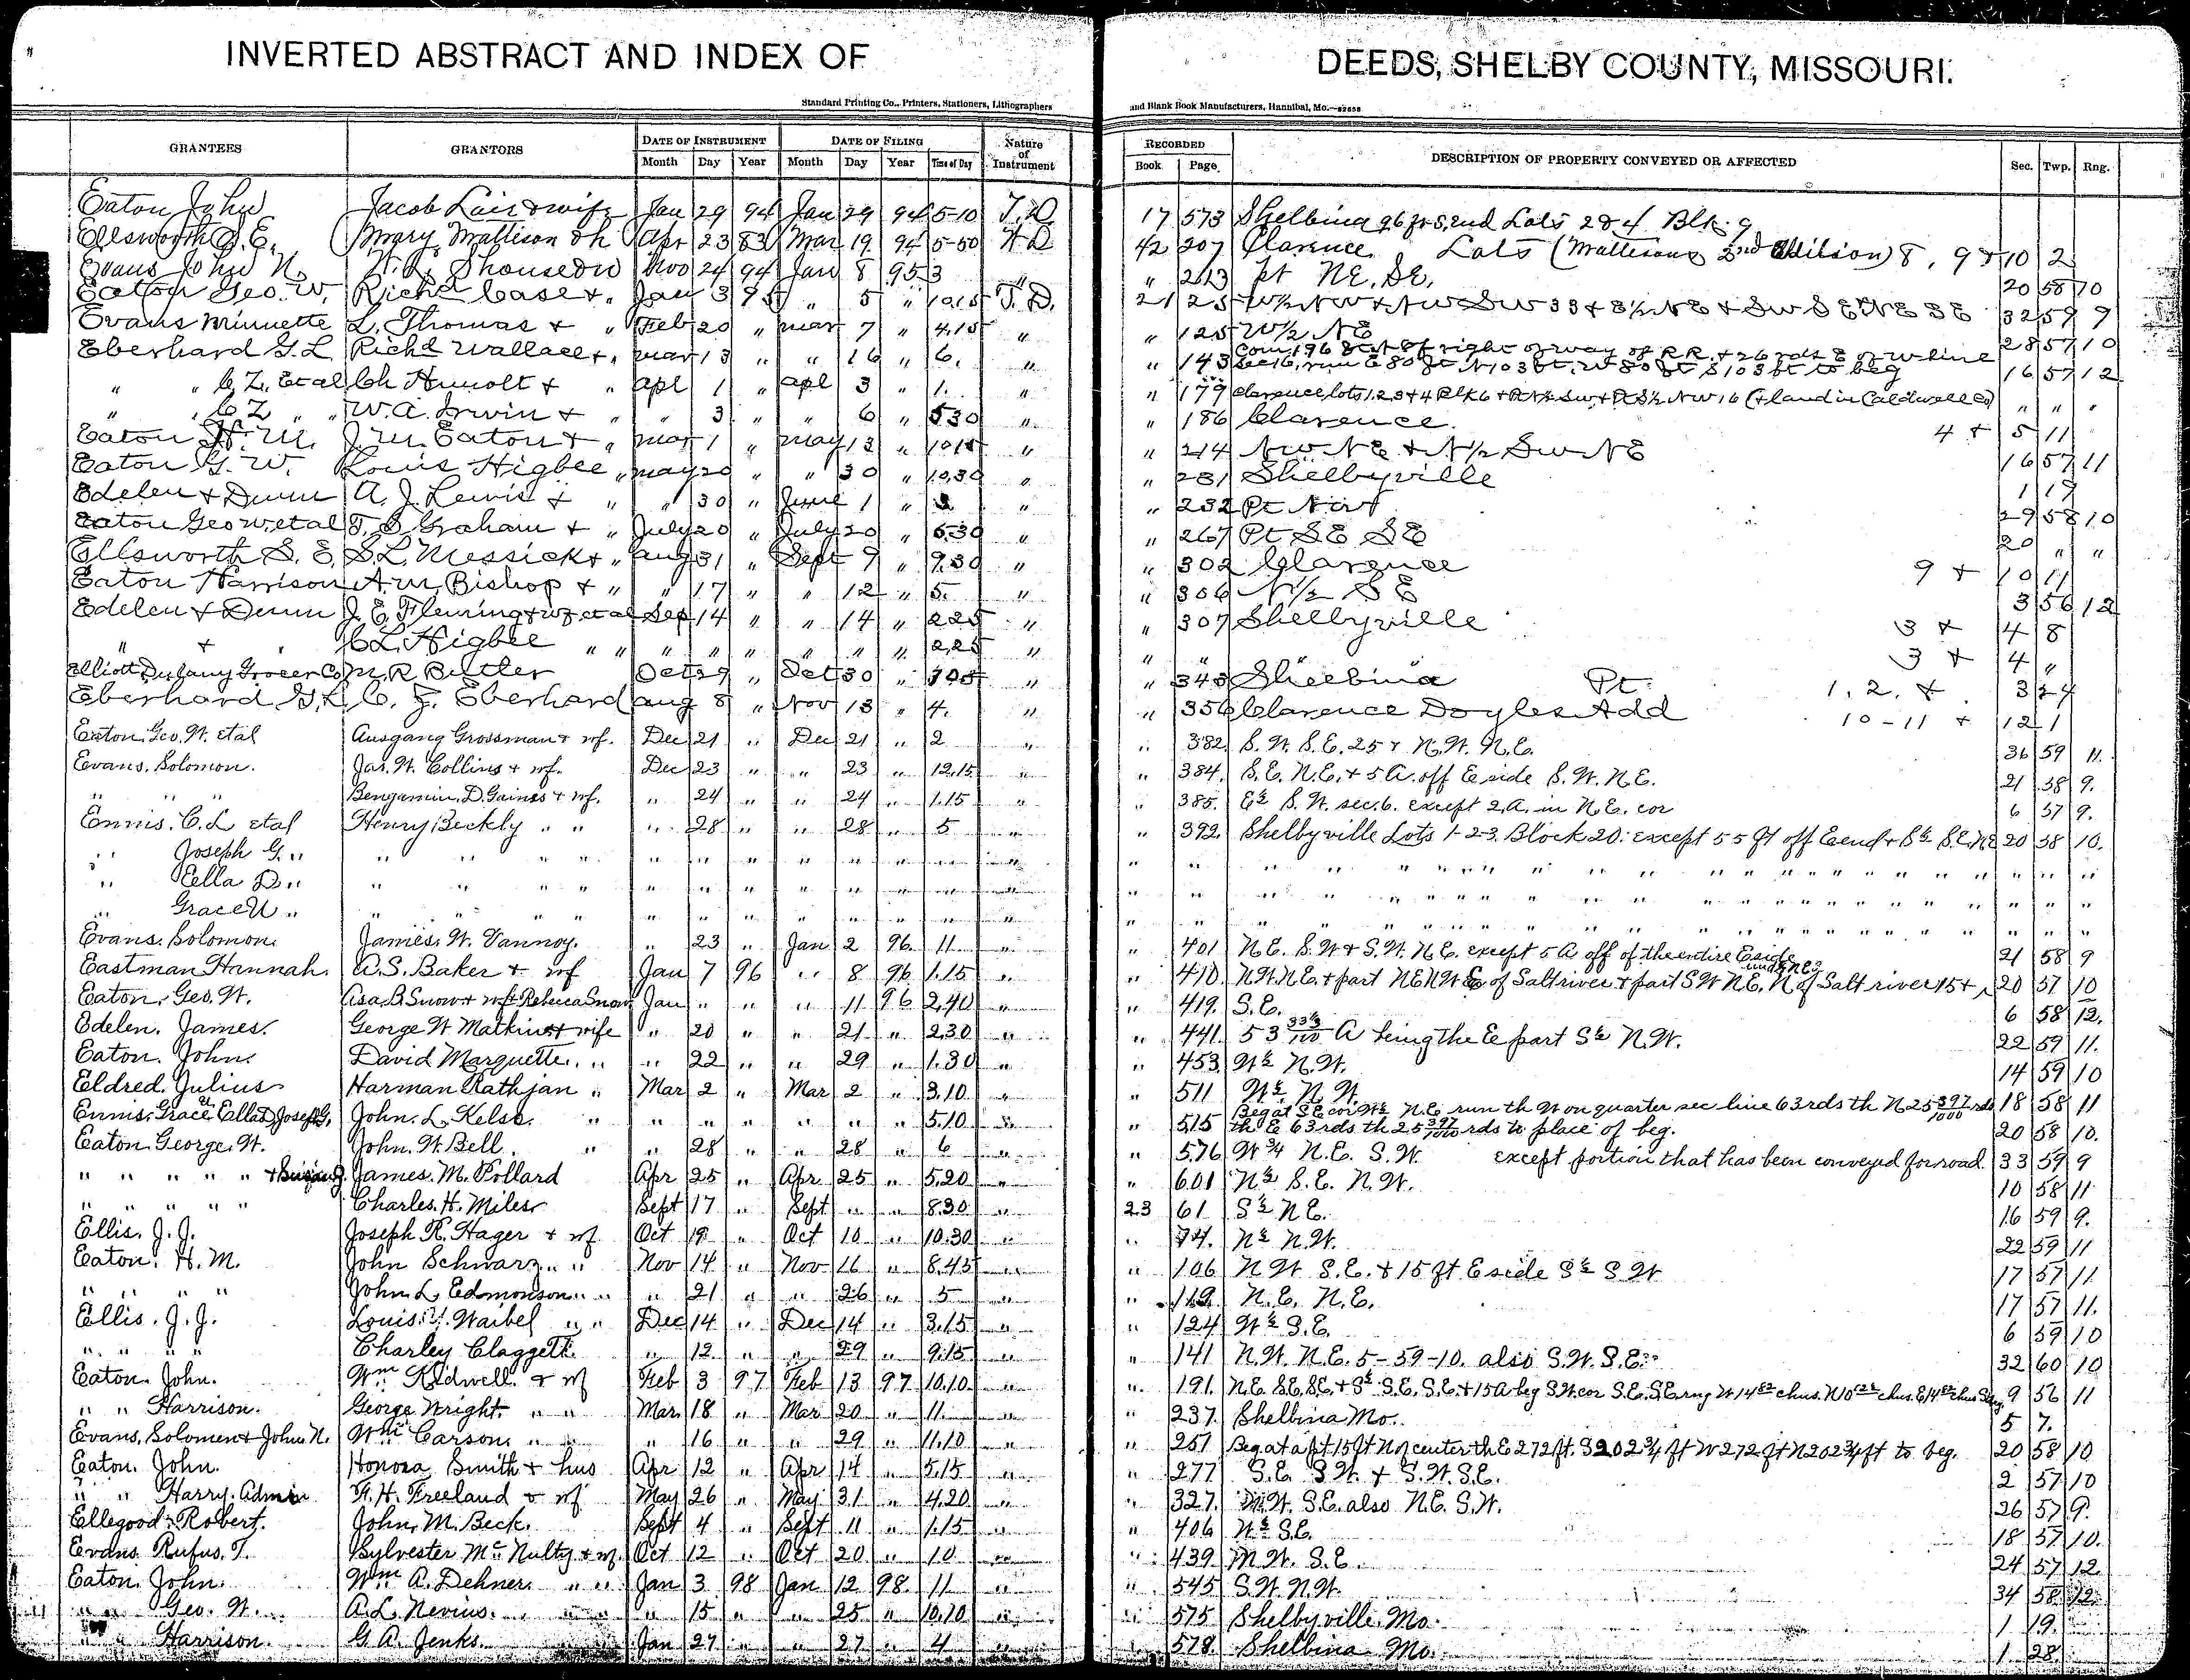 INVERTED ABSTRACT AND INDEX OF DEEDS, SHELBY COUNTY, MISSOURI.
Standard Printing Co., Printers, Stationers, Lithographers and Blank Book Manufacturers, Hannibal, Mo.
GRANTEES GRANTORS DATE OF INSTRUMENT DATE OF FILING Nature of Instrument RECORDED DESCRIPTION OF PROPERTY CONVEYED OR AFFECTED Sec. Twp. Rng.
Month Day Year Month Day Year Time of Day Book Page
Eaton John Jacob Lair & wife Jan 29 94 Jan 29 94 5-10 T.D. 17 573 Shelbina 96 ft S. end Lots 2 & 4 Blk. 9
Ellsworth S. E. Mary Mattison & h Apr 23 83 Mar 19 94 5-50 W D 42 207 Clarence Lots (Mattisons 2nd Addition) 8, 9 & 10 2
Evans John N. Shouse Nov 24 94 Jan 8 95 3 " " 213 pt NE. SE. 20 58 10
Eaton Geo. W. Richd Case & " Jan 3 95 " 5 " 10.15 T.D. 21 25 W½ NW & NW SW 33 & E½ NE & SW SE NE SE 32 59 9
Evans Minnette L. Thomas & " Feb 20 " mar 7 " 4.15 " " 125 W½ NE 28 57 10
Eberhard G. L. Richd Wallace & " mar 13 " " 16 " 6. " " 143 Com 196 ft N of right of way of R.R. & 26 rds E of W line Sec 16, run E 80 ft N 103 ft. W 80 ft S 103 ft to beg 16 57 12
" " C. Z. et al Ch " apl 1 " apl 3 " 1. " " 179 Clarence lots 1,2,3 & 4 Blk 6 (& land in Caldwell Co) " " "
" " C Z " " W. A. Irwin & " " 3 " " 6 " 5 30 " " 186 Clarence. 4 & 5 11
Eaton H. M. J. M. Eaton & " mar 1 " may 13 " 10 15 " " 214 NW NE & N½ SW NE 16 57 11
Eaton G. W. Louis Higbee " may 20 " " 30 " 10.30 " " 231 Shelbyville 1 19
Edelen & Dunn A. J. Lewis & " " 30 " June 1 " " " 232 Pt 29 58 10
Eaton Geo W. et al T. S. Graham & " July 20 " July 20 " 5 30 " " 267 Pt SE SE 20 " "
Ellsworth S. E. S. L. Messick & " aug 31 " Sept 9 " 9.30 " " 302 Clarence 9 & 10 11
Eaton Harrison A. M. Bishop & " " 17 " " 12 " 5. " " 306 N½ SE 3 56 12
Edelen & Dunn J. E. Fleming & wf. et al Sep 14 " " 14 " 2 25 " " 307 Shelbyville 3 & 4 8
" & " C L. Higbee " " " " " " " " 2,25 " " " " 3 & 4 "
Elliott, Dulany Grocer Co M. R. Butler Oct 29 " Oct 30 " 3 05 " " 343 Shelbina Pt. 1, 2, & 3 24
Eberhard G. L. C. Z. Eberhard aug 8 " Nov 13 " 4. " " 356 Clarence Doyles Add 10-11 & 12 1
Eaton. Geo. W. etal Ausgang Grossman & wf. Dec 21 " Dec 21 " 2 " " 382 S. W. S. E. 25 & N. W. N. E. 36 59 11.
Evans. Solomon. Jas. W. Collins & wf. Dec 23 " " 23 " 12.15 " " 384. S. E. N. E. & 5 A. off E side S. W. N. E. 21 58 9.
" " " Bengamin. D. Gaines & wf. " 24 " " 24 " 1.15 " " 385. E½ S. W. sec. 6. except 2, A. in N. E. cor 6 57 9.
Ennis. C. L etal Henry Beckly " " " 28 " " 28 " 5 " " 392. Shelbyville Lots 1-2-3. Block 20. except 55 ft off E end & S½ S.E. N.E 20 58 10.
" Joseph G. " " " " " " " " " " " " " " " " " " "
" Ella D. " " " " " " " " " " " " " " " " " " "
" Grace U " " " " " " " " " " " " " " " " " " "
Evans. Solomon. James. W. Vannoy. " 23 " Jan 2 96. 11 " " 401 N E. S. W & S. W. N. E. except 5 A off of the entire E side 21 58 9
Eastman Hannah. A. S. Baker & wf Jan 7 96 " 8 96 1.15 " " 410. N. W. N. E. & part N E N W E of Salt river & part S W N. E. N of Salt river 15 & 20 57 10
Eaton. Geo. W. Asa. B. Snow & wf & Rebecca Snow Jan " " " 11 96 2.40 " " 419. S. E. 6 58 12.
Edelen. James. George W Matkins & wife " 20 " " 21 " 2.30 " " 441. 53 33⅓/100 A being the E part S½ N. W. 22 59 11.
Eaton. John. David Marquette. " " 22 " " 29 " 1.30 " " 453 W½ N. W. 14 59 10
Eldred. Julius Harman Rathjan " Mar 2 " Mar 2 " 3.10. " " 511 W½. N. W. 18 58 11
Ennis. Grace U Ella D Joseph G. John. L. Kelso. " " " " " " " 5.10 " " 515 Beg at S E cor W½ N. E run th W on quarter sec line 63 rds th N 25 397/1000 rds the E 63 rds th 25 397/1000 rds to place of beg. 20 58 10.
Eaton. George. W. John. W. Bell. " " 28 " " 28 " 6 " " 576 W ¾ N. E. S. W. except portion that has been conveyed for road. 33 59 9
" " " " " James. M. Pollard Apr 25 " Apr 25 " 5.20 " " 601 N½ S. E. N. W. 10 58 11
" " " " Charles. H. Miles Sept 17 " Sept " " 8.30 " 23 61 S½ N E. 16 59 9.
Ellis. J. J. Joseph R. Hager & wf Oct 19 " Oct 10 " 10.30 " " 74. N½ N. W. 22 59 11
Eaton. H. M. John Schwarz " " Nov 14 " Nov 16 " 8.45 " " 106 N W S. E. & 15 ft E side S½ S W 17 57 11
" " " " John L. Edmonson " " " 21 " " 26 " 5 " " 119. N. E. N. E. 17 57 11.
Ellis. J. J. Louis. Y. Waibel " " Dec 14 " Dec 14 " 3.15 " " 124 W½ S. E. 6 59 10
" " " " Charley Claggett. " 12 " " 29 " 9.15 " " 141 N. W. N. E. 5-59-10. also S. W. S. E. 32 60 10
Eaton. John. Wm Kidwell. & wf Feb 3 97 Feb 13 97 10.10. " " 191. N. E. S. E. S. E. & S½ S. E. S. E. & 15 A beg S. W. cor S. E. S. E rng W 9 56 11
" " Harrison. George Wright. " " Mar. 18 " Mar 20 " 11. " " 237. Shelbina Mo. 5 7.
Evans, Solomon & John. N. Wm Carson. " " " 16 " " 29 " 11.10 " " 251 Beg at a pt 15 ft N of center th E 272 ft. S 202 ¾ ft W 272 ft N 202 ¾ ft to beg. 20 58 10
Eaton. John. Honora Smith & hus Apr 12 " Apr 14 " 5.15 " " 277 S. E. S W. & S. W. S. E. 2 57 10
" " Harry. Admin F. H. Freeland & wf May 26 " May 31 " 4.20 " " 327. N. W. S. E. also N. E. S. W. 26 57 9.
Ellegood. Robert. John. M. Beck. Sept 4 " Sept 11 " 1.15 " " 406 W½ S. E. 18 57 10.
Evans. Rufus. T. Sylvester McNulty & wf. Oct 12 " Oct 20 " 10 " " 439. N. W. S. E. 24 57 12.
Eaton. John. Wm A. Dehner. " " Jan 3 98 Jan 12 98. 11 " " 545 S. W. N. W. 34 58 12.
" " Geo. W. A. L. Nevins. " " " 15 " " 25 " 10.10 " " 575 Shelbyville. Mo. 1 19.
" " Harrison. G. A. Jenks. Jan 27 " " 27 " 4 " " 578. Shelbina Mo. 1 28.